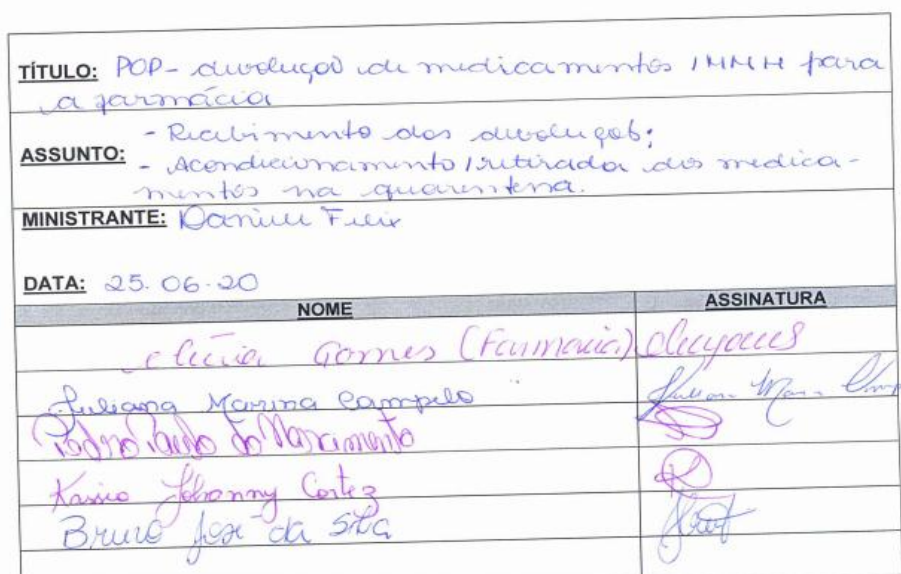 TÍTULO: POP- devolução de medicamentos / MMH para
a farmácia
- Recebimento das devoluções;
ASSUNTO: - Acondicionamento/retirada dos medica-
mentos na quarentena.
MINISTRANTE: Felix
DATA: 25.06.20
NOME ASSINATURA
Gomes (Farmácia)
Juliana Marina Campelo
Pedro Paulo do Nascimento
Kassio Jhonny Cortez
Bruno José da Silva